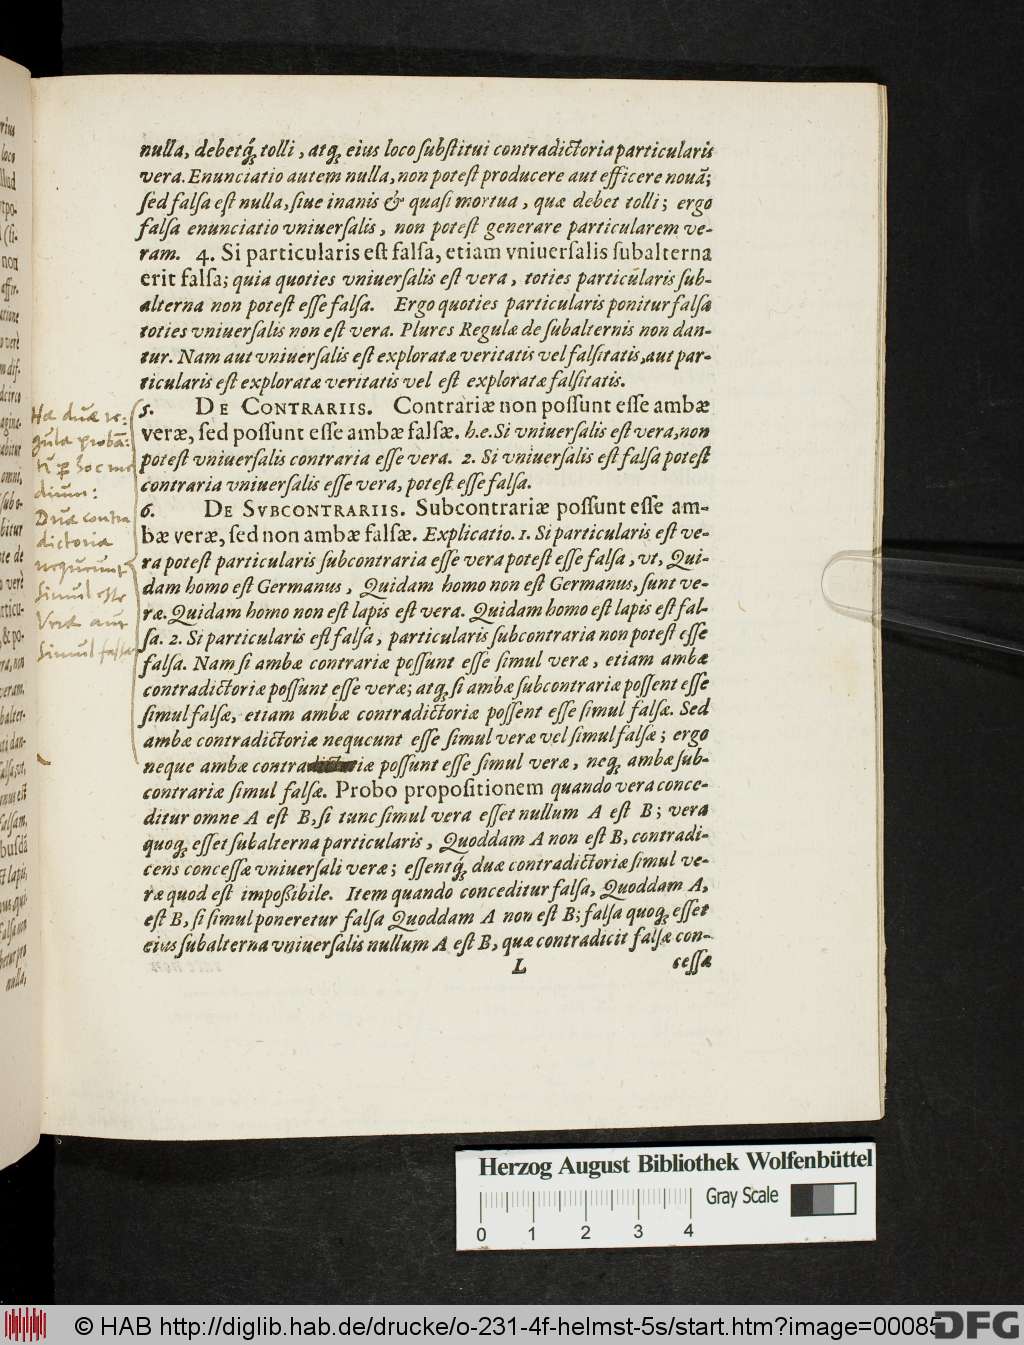 nulla, debetq́; tolli, atq; eius loco ſubſtitui contradictoria particularis
vera. Enunciatio autem nulla, non poteſt producere aut efficere nouā;
ſed falſa eſt nulla, ſiue inanis & quaſi mortua, quæ debet tolli; ergo
falſa enunciatio vniuerſalis, non poteſt generare particularem ve-
ram. 4. Si particularis eſt falſa, etiam vniuerſalis ſubalterna
erit falſa; quia quoties vniuerſalis eſt vera, toties particularis ſub-
alterna non poteſt eſſe falſa. Ergo quoties particularis ponitur falſa
toties vniuerſalis non eſt vera. Plures Regulæ de ſubalternis non dan-
tur. Nam aut vniuerſalis eſt exploratæ veritatis vel falſitatis, aut par-
ticularis eſt exploratæ veritatis vel eſt exploratæ falſitatis.
5. DE CONTRARIIS. Contrariæ non poſſunt eſſe ambæ
veræ, ſed poſſunt eſſe ambæ falſæ. h.e. Si vniuerſalis eſt vera, non
poteſt vniuerſalis contraria eſſe vera. 2. Si vniuerſalis eſt falſa poteſt
contraria vniuerſalis eſſe vera, poteſt eſſe falſa.
6. DE SVBCONTRARIIS. Subcontrariæ poſſunt eſſe am-
bæ veræ, ſed non ambæ falſæ. Explicatio. 1. Si particularis eſt ve-
ra poteſt particularis ſubcontraria eſſe vera poteſt eſſe falſa, vt, Qui-
dam homo eſt Germanus, Quidam homo non eſt Germanus, ſunt ve-
ræ. Quidam homo non eſt lapis eſt vera. Quidam homo eſt lapis eſt fal-
ſa. 2. Si particularis eſt falſa, particularis ſubcontraria non poteſt eſſe
falſa. Nam ſi ambæ contrariæ poſſunt eſſe ſimul veræ, etiam ambæ
contradictoriæ poſſunt eſſe veræ; atq; ſi ambæ ſubcontrariæ poſſent eſſe
ſimul falſæ, etiam ambæ contradictoriæ poſſent eſſe ſimul falſæ. Sed
ambæ contradictoriæ nequeunt eſſe ſimul veræ vel ſimul falſæ; ergo
neque ambæ contradictoriæ poſſunt eſſe ſimul veræ, neq; ambæ ſub-
contrariæ ſimul falſæ. Probo propoſitionem quando vera conce-
ditur omne A eſt B, ſi tunc ſimul vera eſſet nullum A eſt B; vera
quoq; eſſet ſubalterna particularis, Quoddam A non eſt B, contradi-
cens conceſſæ vniuerſali veræ; eſſentq́; duæ contradictoriæ ſimul ve-
ræ quod eſt impoßibile. Item quando conceditur falſa, Quoddam A,
eſt B, ſi ſimul poneretur falſa Quoddam A non eſt B; falſa quoq; eſſet
eius ſubalterna vniuerſalis nullum A eſt B, quæ contradicit falſæ con-
L ceſſæ
Hæ duæ re-
gulæ probā-
tur per hoc me
dium:
Duæ contra
dictoriæ
nequeunt
simul esse
veræ aut
simul falsæ
Herzog August Bibliothek Wolfenbüttel
0 1 2 3 4
Gray Scale
© HAB http://diglib.hab.de/drucke/o-231-4f-helmst-5s/start.htm?image=00085
DFG